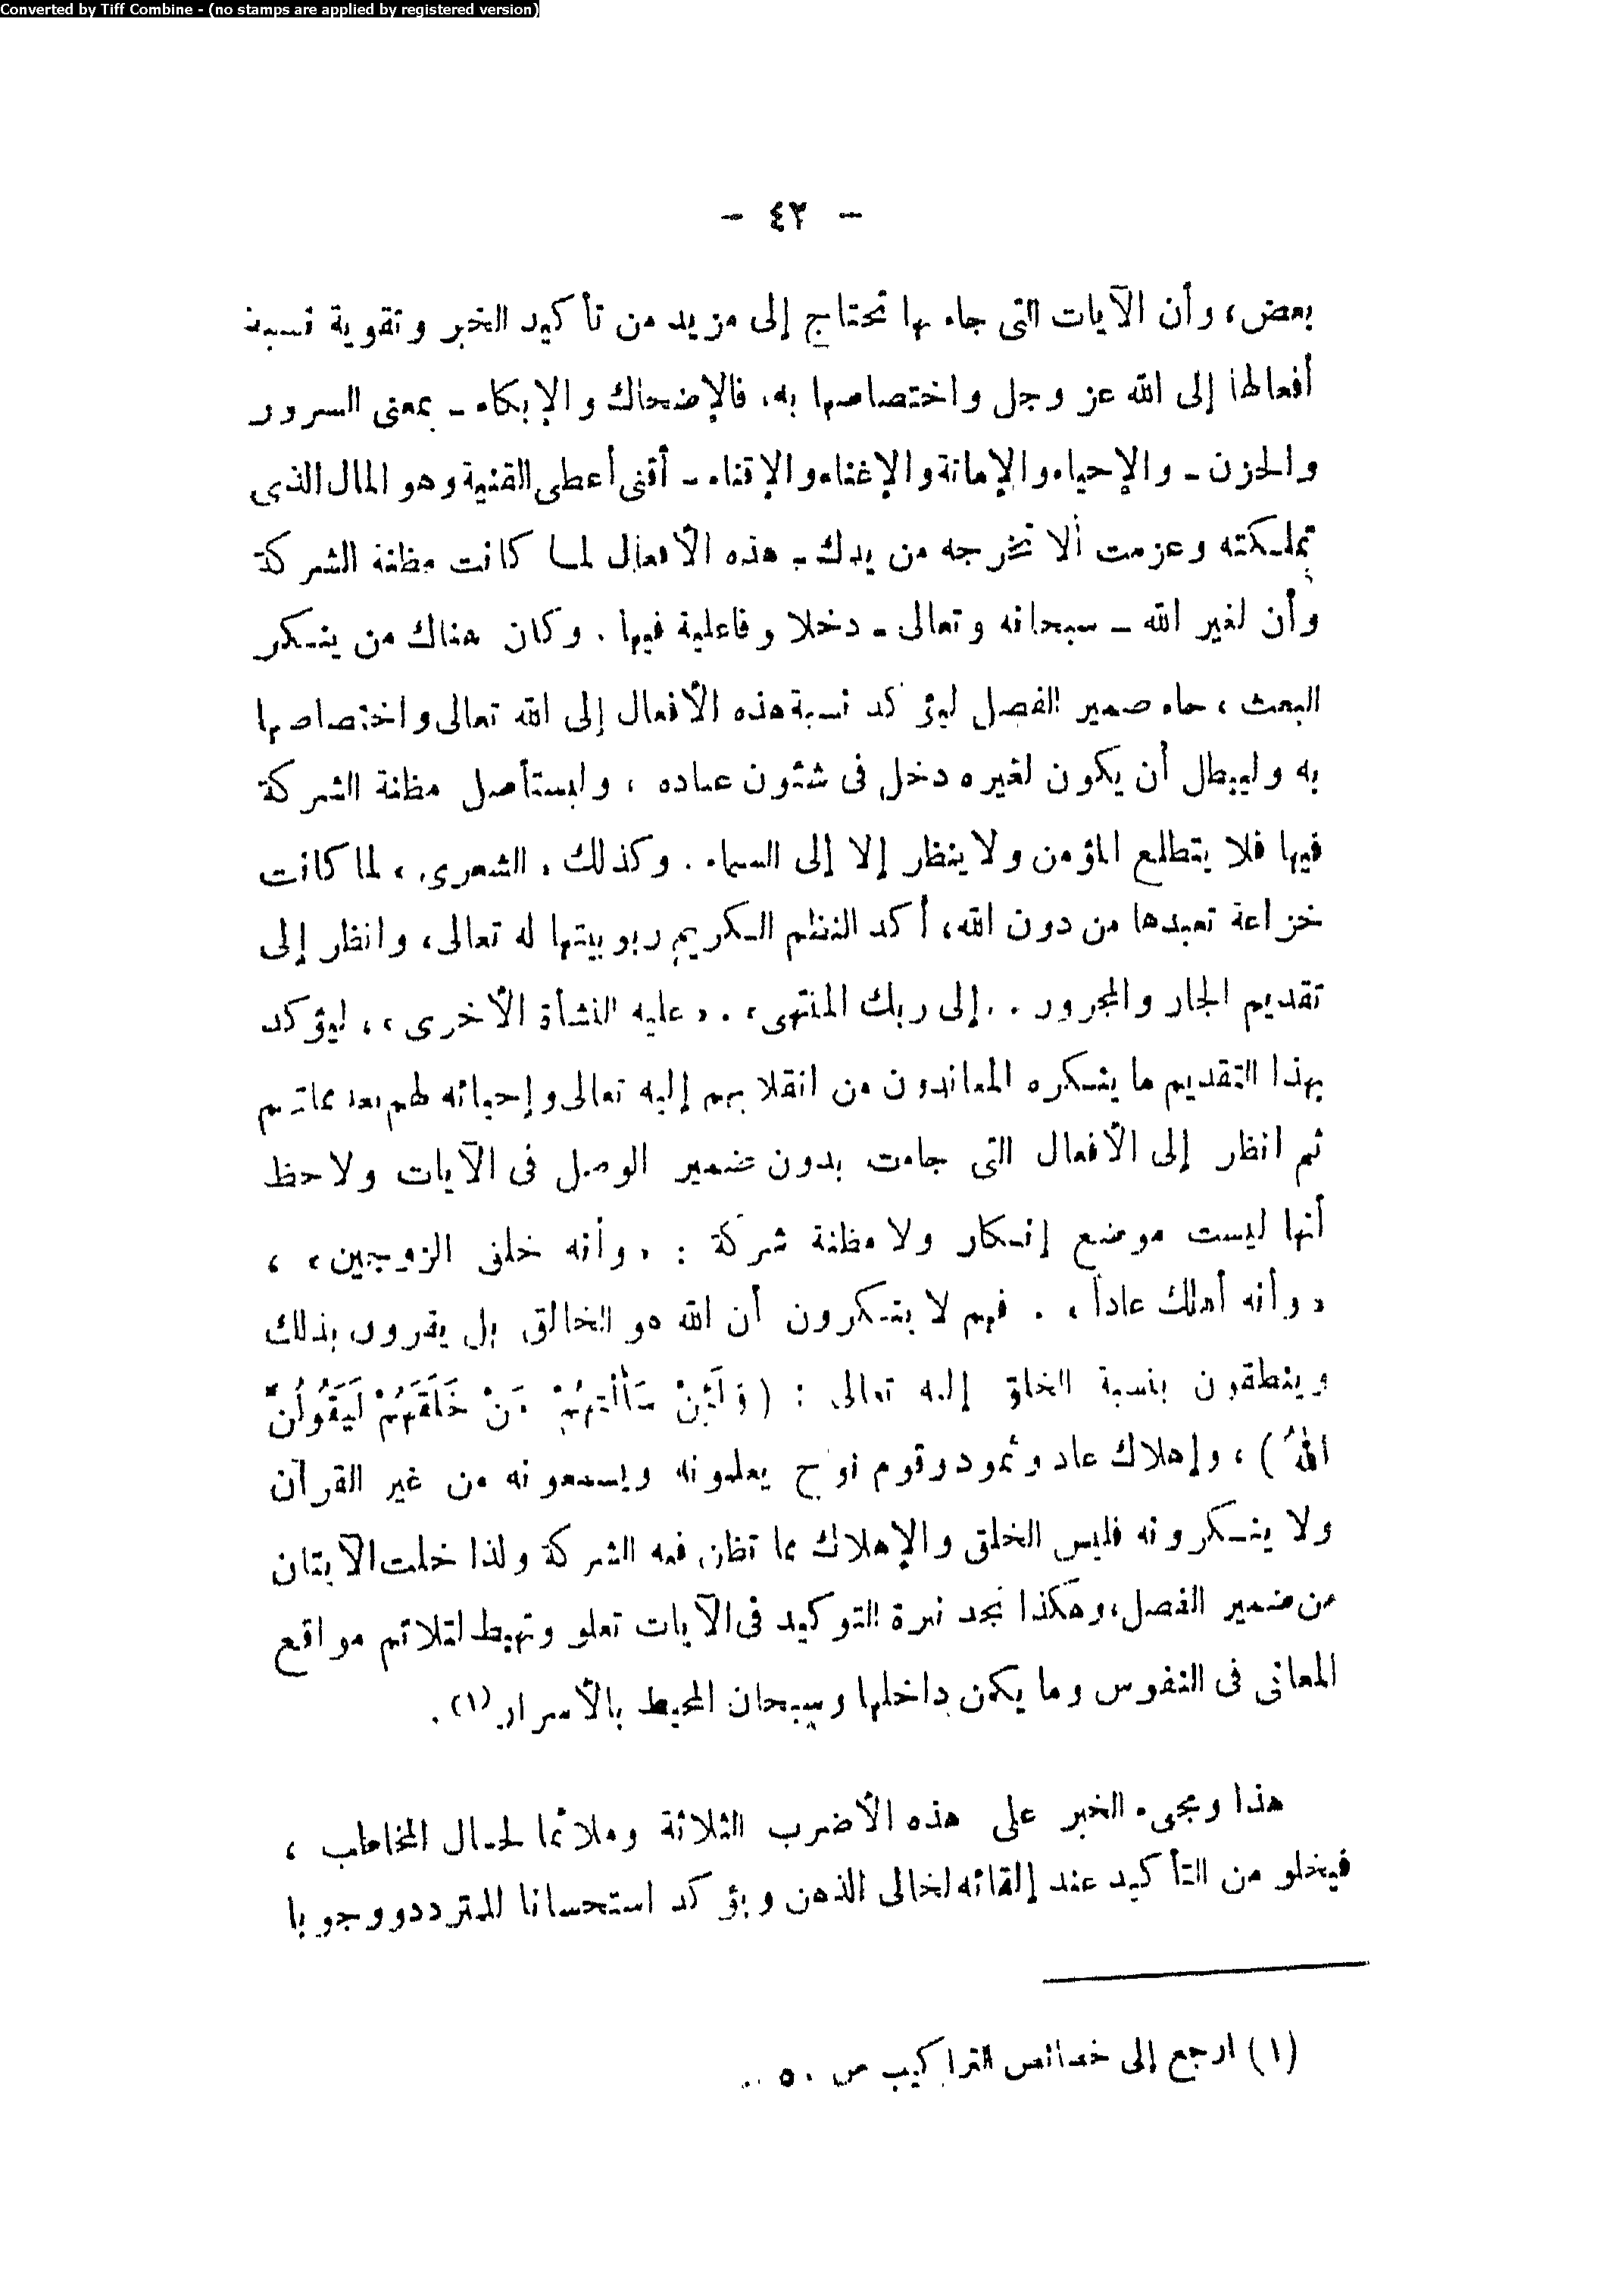 Converted by Tiff Combine - (no stamps are applied by registered version)
- ٤٢ -
بعض، وأن الآيات التى جاء بها تحتاج إلى مزيد من تأكيد الخبر وتقوية نسبة
أفعالها إلى الله عز وجل واختصاصها به. فالإضحاك والإبكاء - بمعنى السرور
والحزن - والإحياء والإماتة والإغناء والإقناء - أقنى أعطى القنية وهو المال الذى
تملكته وعزمت ألا تخرجه من يدك - هذه الأفعال لما كانت مظنة الشركة
وأن لغير الله - سبحانه وتعالى - دخلا وفاعلية فيها . وكان هناك من ينكر
البعث ، جاء ضمير الفصل ليؤكد نسبة هذه الأفعال إلى الله تعالى واختصاصها
به وليبطل أن يكون لغيره دخل فى شئون عباده ، وليستأصل مظنة الشركة
فيها فلا يتطلع المؤمن ولا ينظر إلا إلى السماء . وكذلك « الشعرى » لما كانت
خزاعة تعبدها من دون الله، أكد النظم الكريم ربوبيتها له تعالى، وانظر إلى
تقديم الجار والمجرور . « إلى ربك المنتهى » . « عليه النشأة الأخرى » ، ليؤكد
بهذا التقديم ما ينكره المعاندون من انقلابهم إليه تعالى وإحيائه لهم بعد مماتهم
ثم انظر إلى الأفعال التى جاءت بدون ضمير الوصل فى الآيات ولاحظ
أنها ليست موضع إنكار ولا مظنة شركة : « وأنه خلق الزوجين » ،
« وأنه أهلك عاداً » . فهم لا ينكرون أن الله هو الخالق بل يقرون بذلك
وينطقون بنسبة الخلق إليه تعالى : ( وَلَئِنْ سَأَلْتَهُمْ مَنْ خَلَقَهُمْ لَيَقُولُنَّ
اللهُ ) ، وإهلاك عاد وثمود وقوم نوح يعلمونه ويسمعونه من غير القرآن
ولا ينكرونه فليس الخلق والإهلاك مما تظن فيه الشركة ولذا خلت الآيتان
من ضمير الفصل، وهكذا نجد نبرة التوكيد فى الآيات تعلو وتهبط لتلائم مواقع
المعانى فى النفوس وما يكمن داخلها وسبحان المحيط بالأسرار (١) .
هذا ومجىء الخبر على هذه الأضرب الثلاثة وملائما لحال المخاطب ،
فيخلو من التأكيد عند إلقائه لخالى الذهن ويؤكد استحسانا للمتردد ووجوبا
(١) ارجع إلى خصائص التراكيب ص ٥٠ ..